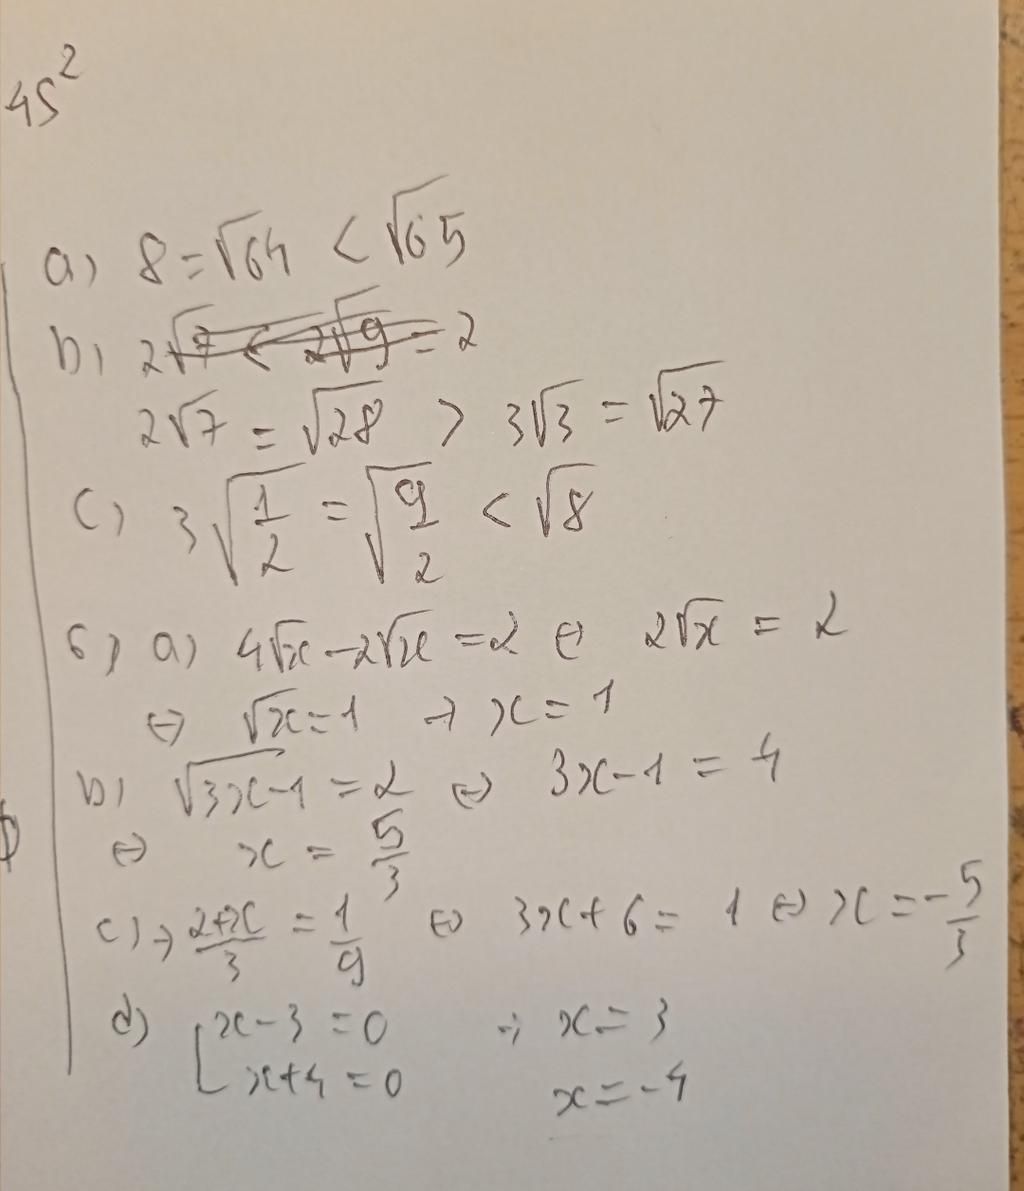 4S²
a) 8 = √64 < √65
b) 2√7 < 2√9 = 2
2√7 = √28 > 3√3 = √27
c) 3√(1/2) = √(9/2) < √8
6) a) 4√x - 2√x = 2 ⇔ 2√x = 2
⇔ √x = 1 → x = 1
b) √(3x-1) = 2 ⇔ 3x-1 = 4
⇔ x = 5/3
c) → (2+x)/3 = 1/9 ⇔ 3x+6 = 1 ⇔ x = -5/3
d) [x-3 = 0 → x = 3
x+4 = 0 x = -4